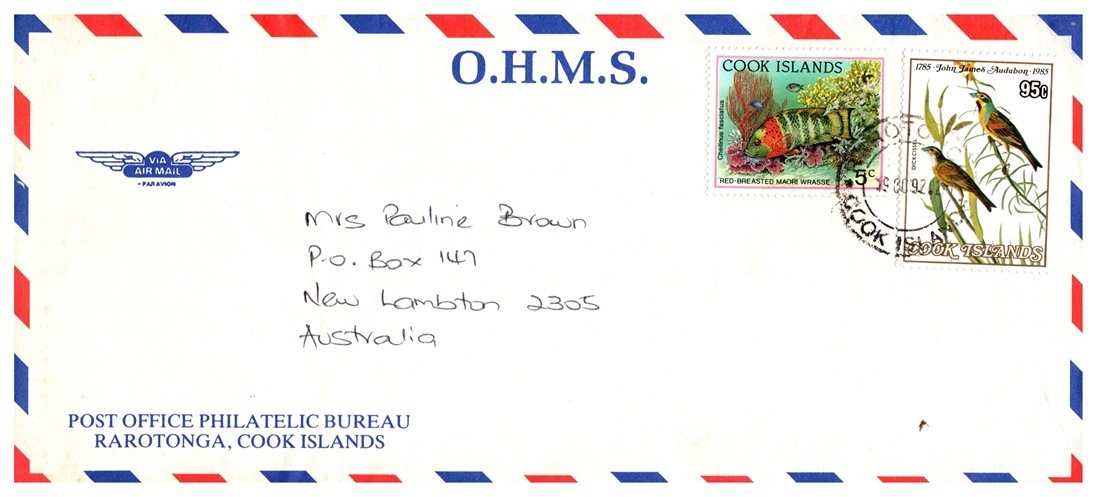 O.H.M.S.
VIA
AIR MAIL
• PAR AVION
COOK ISLANDS
Cheilinus fasciatus
5c
RED-BREASTED MAORI WRASSE
1785 · John James Audubon · 1985
95c
DICKCISSEL
COOK ISLANDS
COOK ISLAN
Mrs Pauline Brown
P.O. Box 147
New Lambton 2305
Australia
POST OFFICE PHILATELIC BUREAU
RAROTONGA, COOK ISLANDS